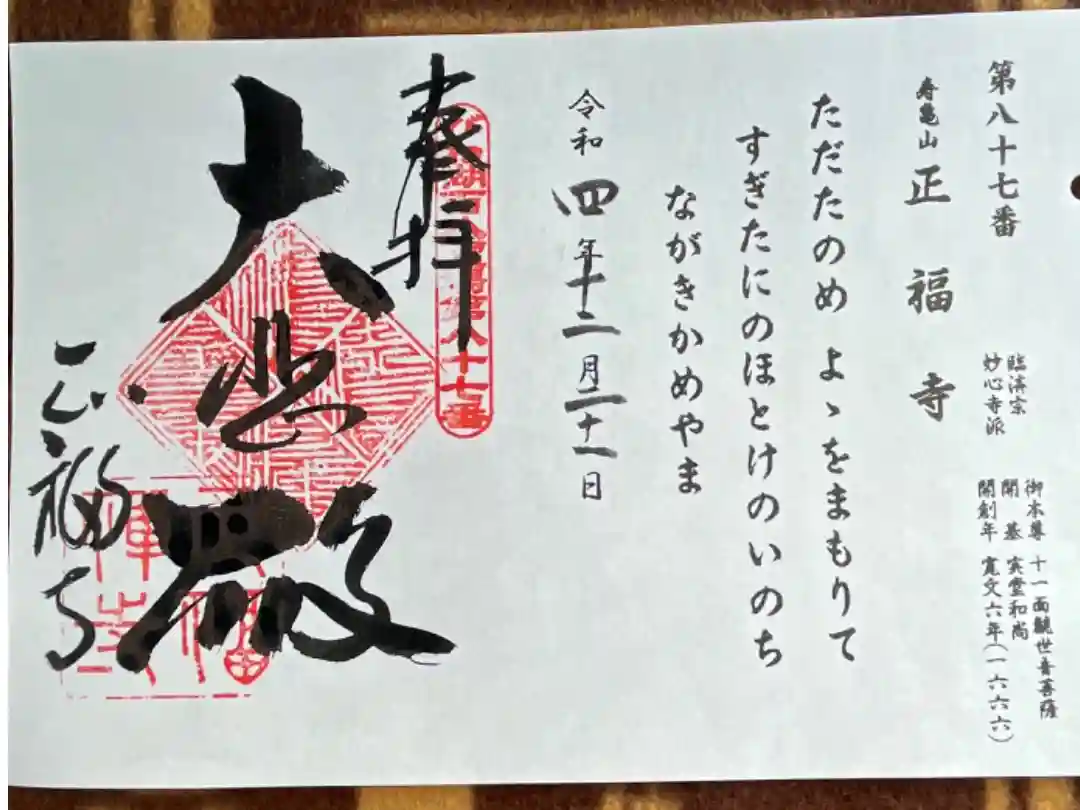 第八十七番
寿亀山 正福寺
臨済宗
妙心寺派
御本尊 十一面観世音菩薩
開基 実堂和尚
開創年 寛文六年(一六六六)
ただたのめ よゝをまもりて
すぎたにのほとけのいのち
ながきかめやま
令和四年十二月二十一日
奉拝
大悲殿
正福寺